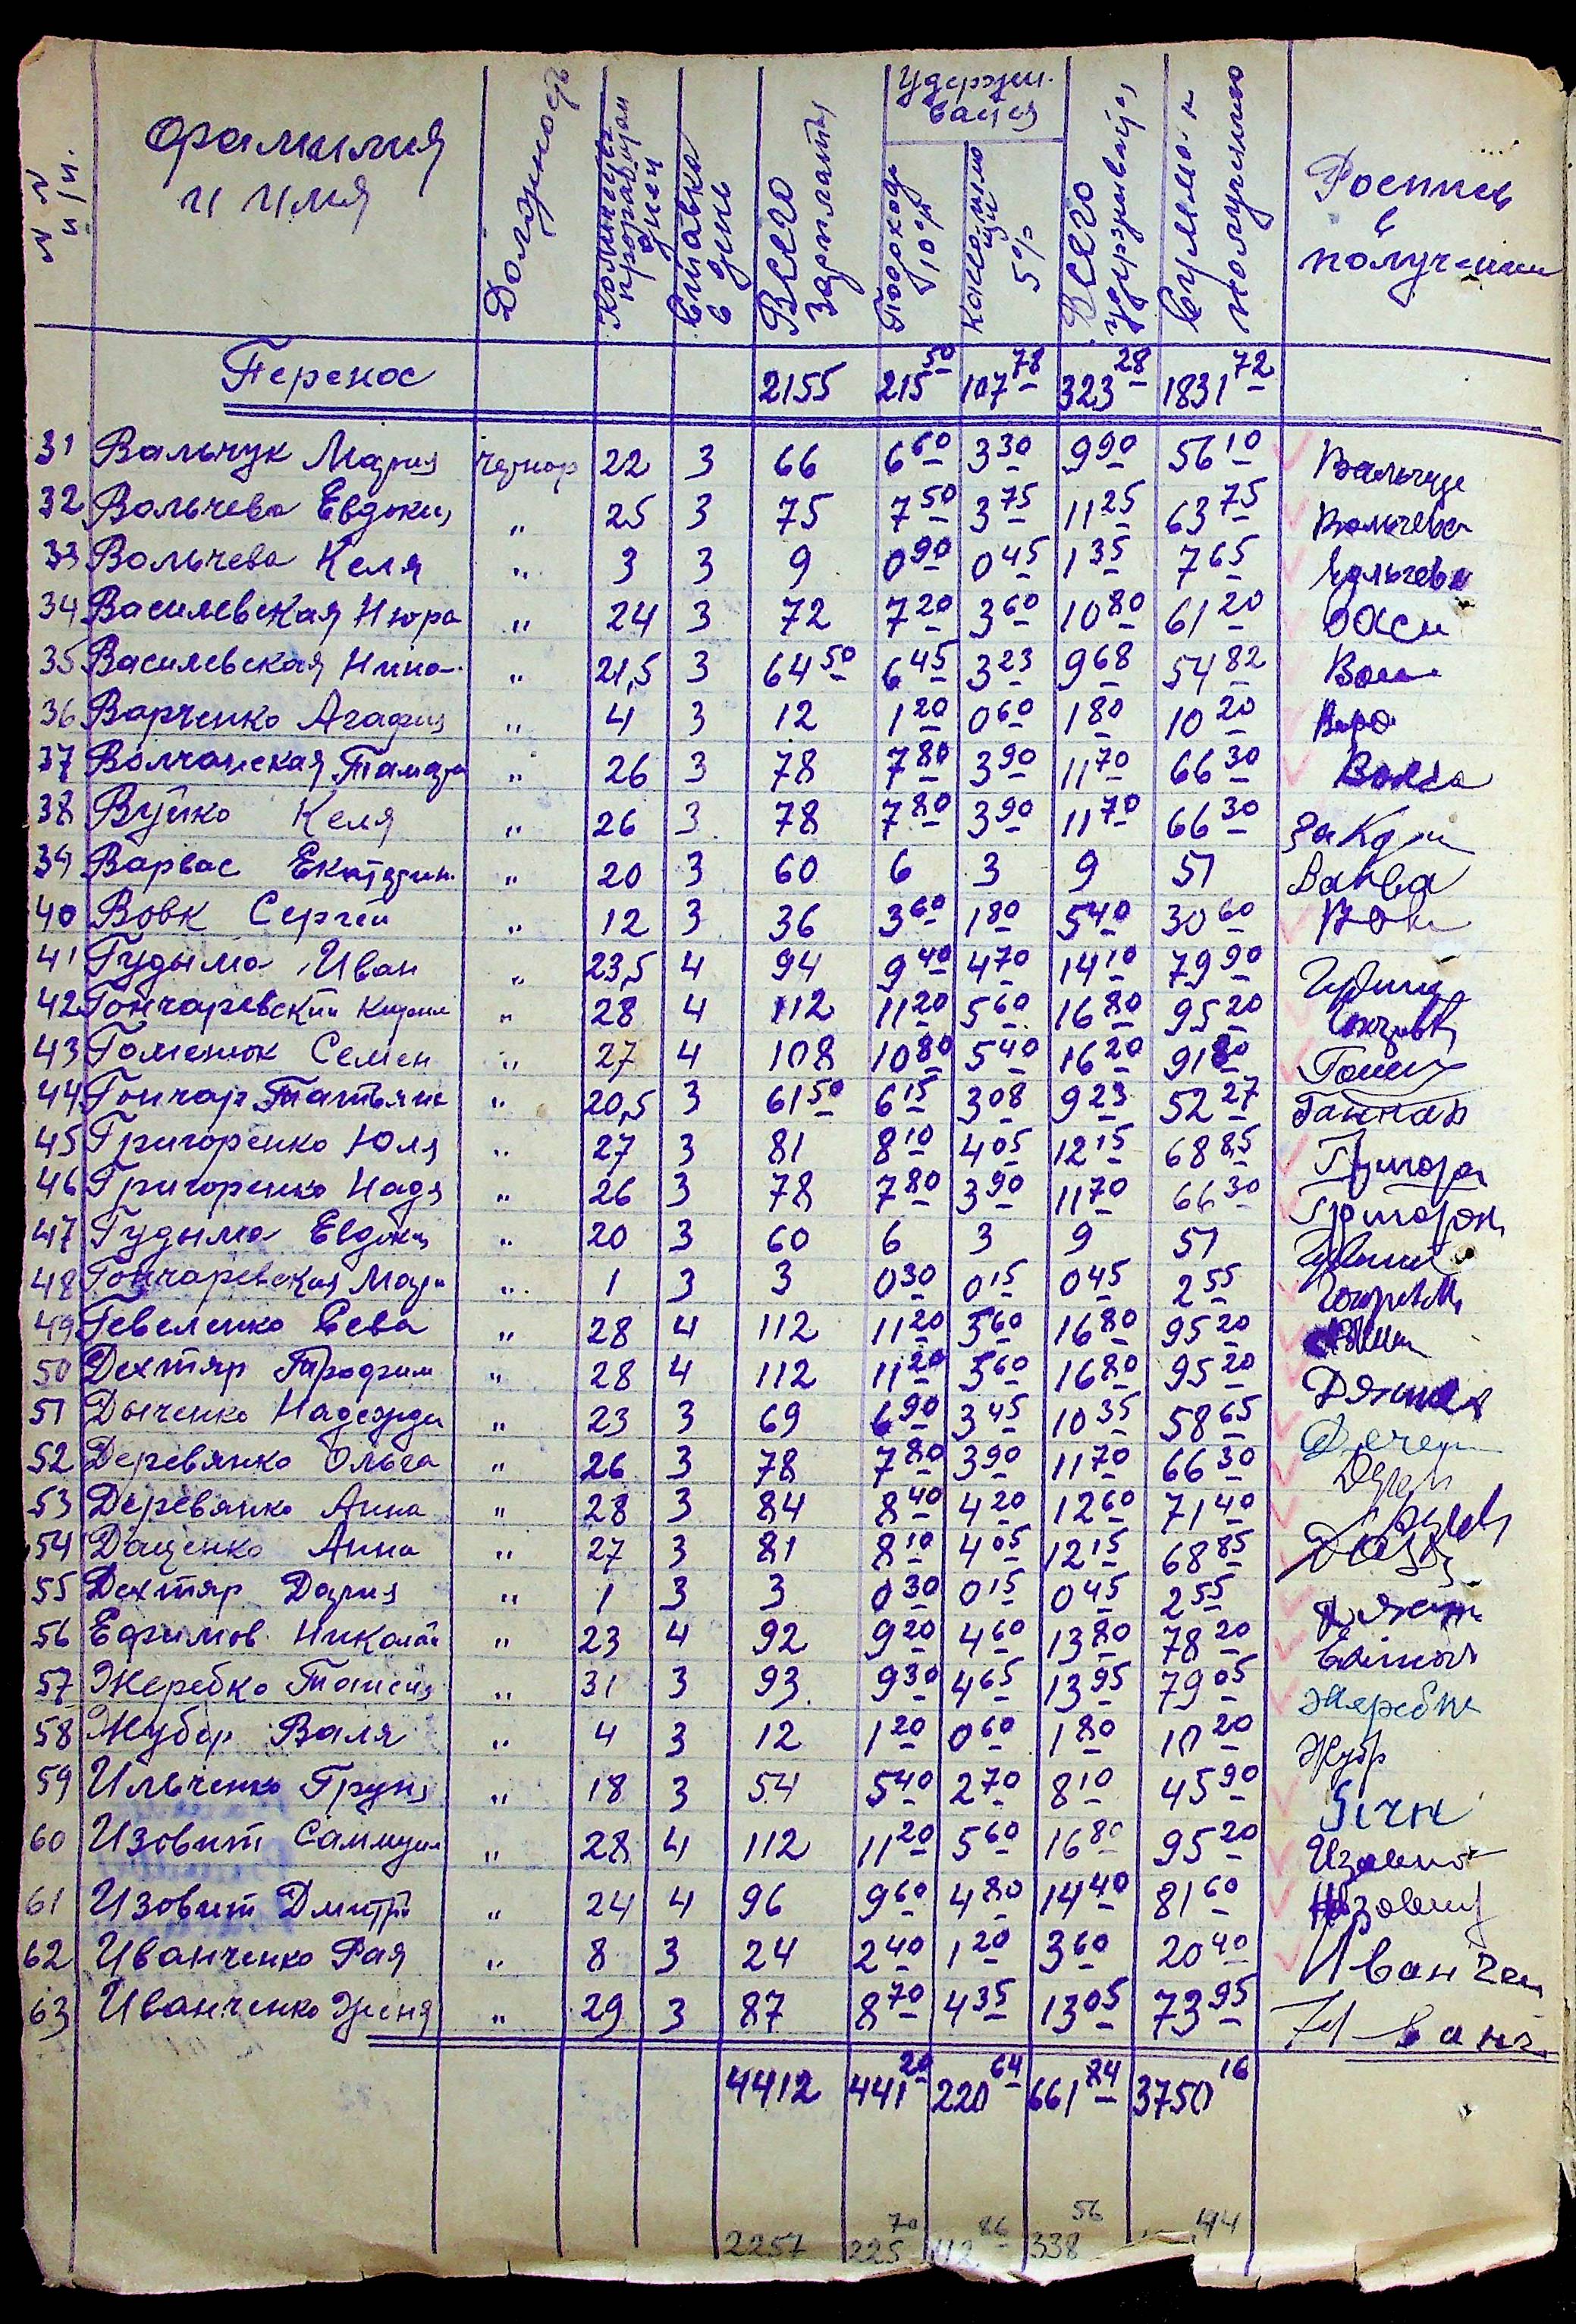 № № п/п. Фамилия и имя Должность Количество проработан дней Ставка в день Всего зарплаты Удержи- вается Подоход 10% 5% Всего удерживается Сумма к получению Роспись в получении
Перенос 2155 215 50 107 78 323 28 1831 72
31 Вальчук Мария чернор 22 3 66 6 60 3 30 9 90 56 10 Вальчук
32 Вольчева Евдокия " 25 3 75 7 50 3 75 11 25 63 75 Вольчева
33 Вольчева Келя " 3 3 9 0 90 0 45 1 35 7 65
34 Василевская Нюра " 24 3 72 7 20 3 60 10 80 61 20 Васи
35 Василевская Нина " 21,5 3 64 50 6 45 3 23 9 68 54 82
36 Варченко Агафия " 4 3 12 1 20 0 60 1 80 10 20
37 Волчанская Тамара " 26 3 78 7 80 3 90 11 70 66 30
38 Вуйко Келя " 26 3 78 7 80 3 90 11 70 66 30
39 Варвас Екатерин. " 20 3 60 6 3 9 51
40 Вовк Сергей " 12 3 36 3 60 1 80 5 40 30 60 Вовк
41 Гудыма Иван " 23,5 4 94 9 40 4 70 14 10 79 90
42 Гончаревский Кирил " 28 4 112 11 20 5 60 16 80 95 20
43 Гоменюк Семен " 27 4 108 10 80 5 40 16 20 91 80
44 Гончар Татьяна " 20,5 3 61 50 6 15 3 08 9 23 52 27
45 Григоренко Юля " 27 3 81 8 10 4 05 12 15 68 85 Григоре
46 Григоренко Надя " 26 3 78 7 80 3 90 11 70 66 30 Григорен
47 Гудыма Евдокия " 20 3 60 6 3 9 51
48 Гончаревская Мари " 1 3 3 0 30 0 15 0 45 2 55
49 Гевеленко Сева " 28 4 112 11 20 5 60 16 80 95 20
50 Дехтяр Трофим " 28 4 112 11 20 5 60 16 80 95 20
51 Дыченко Надежда " 23 3 69 6 90 3 45 10 35 58 65
52 Деревянко Ольга " 26 3 78 7 80 3 90 11 70 66 30
53 Деревянко Анна " 28 3 84 8 40 4 20 12 60 71 40
54 Даценко Анна " 27 3 81 8 10 4 05 12 15 68 85
55 Дехтяр Дария " 1 3 3 0 30 0 15 0 45 2 55
56 Ефимов Николай " 23 4 92 9 20 4 60 13 80 78 20
57 Жеребко Таисия " 31 3 93 9 30 4 65 13 95 79 05
58 Жубер Валя " 4 3 12 1 20 0 60 1 80 10 20
59 Ильченко Груня " 18 3 54 5 40 2 70 8 10 45 90
60 Изовит Саммуил " 28 4 112 11 20 5 60 16 80 95 20
61 Изовит Дмитрй " 24 4 96 9 60 4 80 14 40 81 60
62 Иванченко Рая " 8 3 24 2 40 1 20 3 60 20 40 Иванчен
63 Иванченко Женя " 29 3 87 8 70 4 35 13 05 73 95 Иванч
4412 441 20 220 64 661 84 3750 16
2257 225 70 112 86 338 56 44